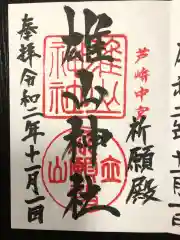 芦峅中宮
祈願殿
雄山神社
奉拝令和二年十一月一日